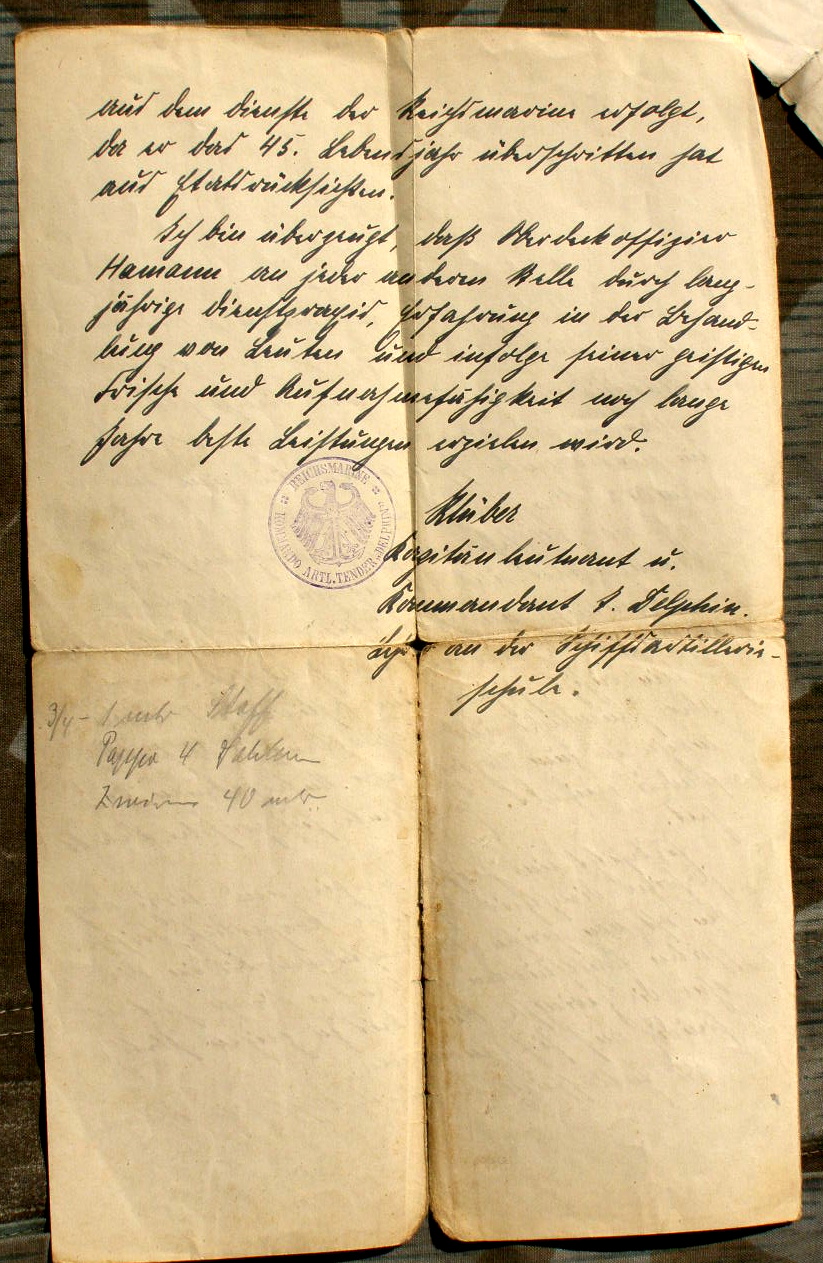 aus dem Dienste der Reichsmarine erfolgt,
da er das 45. Lebensjahr überschritten hat
aus Etatsrücksichten.
Ich bin überzeugt, daß Oberdeckoffizier
Hamann an jeder anderen Stelle durch lang-
jährige Dienstpraxis, Erfahrung in der Behand-
lung von Leuten und infolge seiner geistigen
Frische und Aufnahmefähigkeit noch lange
Jahre beste Leistungen erzielen wird.
REICHSMARINE
KOMMANDO ARTL. TENDER „DELPHIN"
Klüber
Kapitänleutnant u.
Kommandant T. Delphin.
Lehrer an der Schiffsartillerie-
schule.
3/4 - 1 mtr Stoff
Pappe 4
40 mtr.